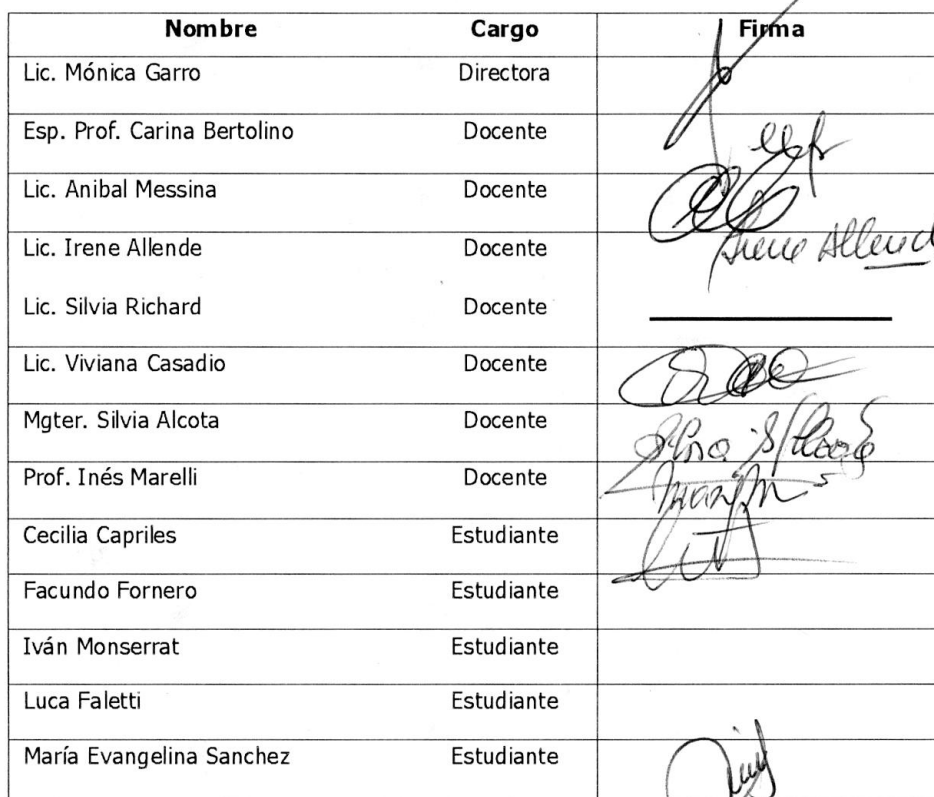 Nombre Cargo Firma
Lic. Mónica Garro Directora
Esp. Prof. Carina Bertolino Docente
Lic. Anibal Messina Docente
Lic. Irene Allende Docente Irene Allend
Lic. Silvia Richard Docente
Lic. Viviana Casadio Docente
Mgter. Silvia Alcota Docente
Prof. Inés Marelli Docente
Cecilia Capriles Estudiante
Facundo Fornero Estudiante
Iván Monserrat Estudiante
Luca Faletti Estudiante
María Evangelina Sanchez Estudiante